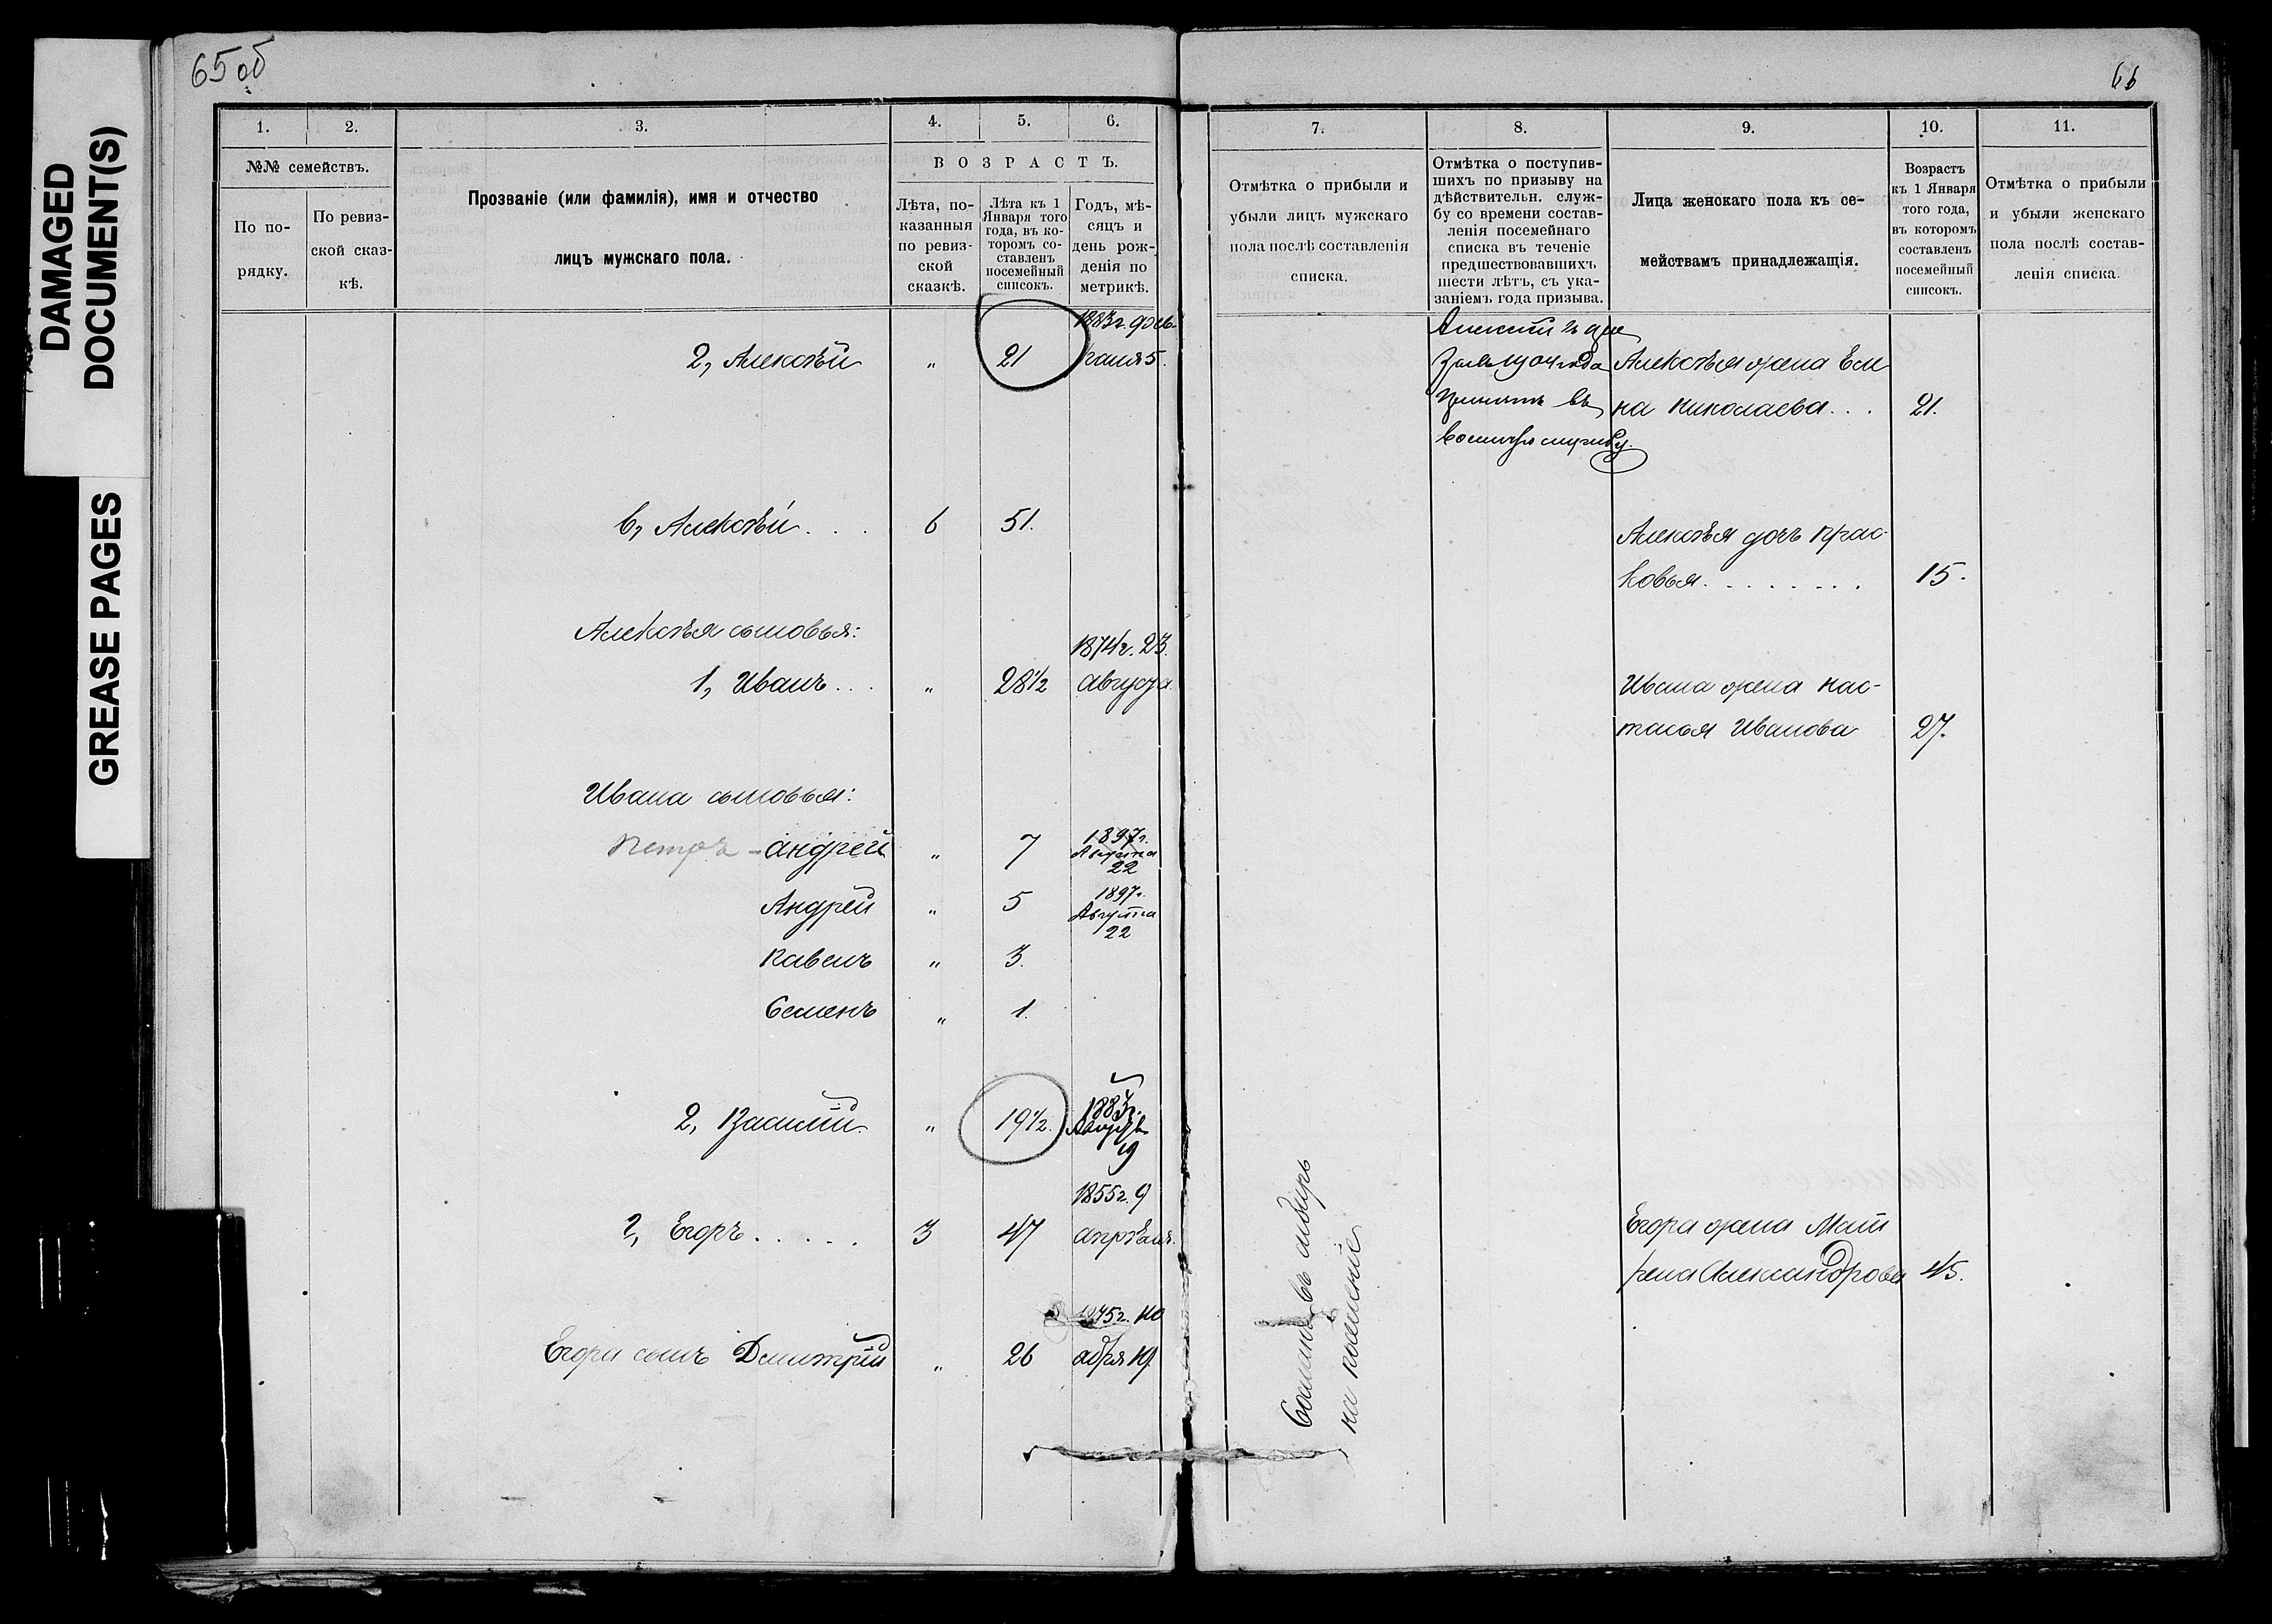 DAMAGED
DOCUMENT(S)
GREASE PAGES
65 об
1.
2.
3.
4.
5.
6.
№№ семействъ.
По по-
рядку.
По ревиз-
ской сказ-
кѣ.
Прозваніе (или фамилія), имя и отчество
лицъ мужскаго пола.
ВОЗРАСТЪ.
Лѣта, по-
казанныя
по ревиз-
ской
сказкѣ.
Лѣта къ 1
Января того
года, въ ко-
торомъ со-
ставленъ
посемейный
списокъ.
Годъ, мѣ-
сяцъ и
день рож-
денія по
метрикѣ.
1883г. фев-
2, Алексѣй " 21 раля 5.
6, Алексѣй . . . 6 51.
Алексѣя сыновья:
1874г. 23.
1, Иванъ . . . " 28 1/2 августа
Ивана сыновья:
Петръ - андрей " 7 1897г.
Августа
22
Андрей " 5 1897г.
Августа
22
Павелъ " 3.
Семенъ " 1.
2, Василій " 19 1/2. 1883г.
Августа
19
1855г. 9
2, Егоръ . . . . . 3 47 апрѣля.
1875г. но
Егора сынъ Дмитрій " 26 ября 19.
66
7.
8.
9.
10.
11.
Отмѣтка о прибыли и
убыли лицъ мужскаго
пола послѣ составленія
списка.
Отмѣтка о поступив-
шихъ по призыву на
дѣйствительн. служ-
бу со времени состав-
ленія посемейнаго
списка въ теченіе
предшествовавшихъ
шести лѣтъ, съ ука-
заніемъ года призыва.
Лица женскаго пола къ се-
мействамъ принадлежащія.
Возрастъ
къ 1 Января
того года,
въ которомъ
составленъ
посемейный
списокъ.
Отмѣтка о прибыли
и убыли женскаго
пола послѣ состав-
ленія списка.
Алексѣй
1904 года
принятъ въ
военную службу.
Алексѣя жена Еле
на Николаева . . . 21.
Алексѣя дочь Прас-
ковья . . . . . . . 15.
Ивана жена Нас-
тасья Иванова 27.
Сосланъ въ сибирь
на поселеніе
Егора жена Мат
рена Александрова 45.